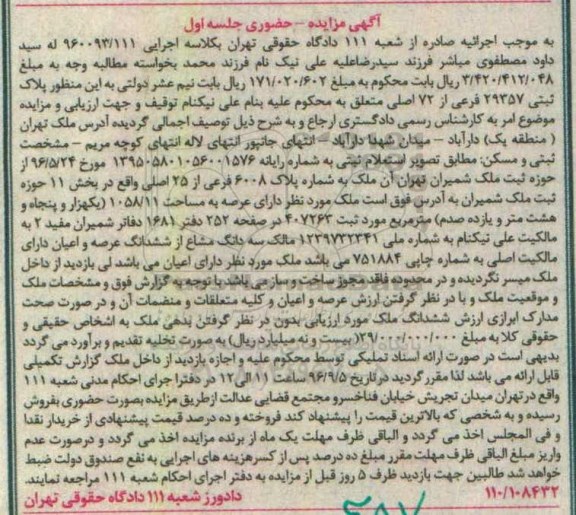 آگهی مزایده - حضوری جلسه اول
به موجب اجرائیه صادره از شعبه ۱۱۱ دادگاه حقوقی تهران بکلاسه اجرایی ۹۶۰۰۹۳/۱۱۱ له سید
داود مصطفوی مباشر فرزند سیدرضاعلیه علی نیک نام فرزند محمد بخواسته مطالبه وجه به مبلغ
۳/۴۲۰/۴۱۲/۰۴۸ ریال بابت محکوم به مبلغ ۱۷۱/۰۲۰/۶۰۲ ریال بابت نیم عشر دولتی به این منظور پلاک
ثبتی ۲۹۳۵۷ فرعی از ۷۲ اصلی متعلق به محکوم علیه بنام علی نیکنام توقیف و جهت ارزیابی و مزایده
موضوع امر به کارشناس رسمی دادگستری ارجاع و به شرح ذیل توصیف اجمالی گردیده آدرس ملک تهران
( منطقه یک) دارآباد – میدان شهدا دارآباد – انتهای جانپور انتهای لاله انتهای کوچه مریم – مشخصت
ثبتی و مسکن: مطابق تصویر استعلام ثبتی به شماره رایانه ۱۳۹۵۰۵۸۰۱۰۵۶۰۰۱۵۷۶ مورخ ۹۶/۵/۲۴ از
حوزه ثبت ملک شمیران تهران آن ملک به شماره پلاک ۶۰۰۸ فرعی از ۲۵ اصلی واقع در بخش ۱۱ حوزه
ثبت ملک شمیران به آدرس فوق است ملک مورد نظر دارای عرصه به مساحت ۱۰۵۸/۱۱ (یکهزار و پنجاه و
هشت متر و یازده صدم) مترمربع مورد ثبت ۴۰۷۲۶۳ در صفحه ۲۵۲ دفتر ۱۶۸۱ دفاتر شمیران مفید ۲ به
مالکیت علی نیکنام به شماره ملی ۱۲۳۹۷۳۲۳۴۱ مالک سه دانگ مشاع از ششدانگ عرصه و اعیان دارای
مالکیت اصلی به شماره چاپی ۷۵۱۸۸۴ می باشد ملک مورد نظر دارای اعیان می باشد لی بازدید از داخل
ملک میسر نگردیده و در محدوده فاقد مجوز ساخت و ساز می باشد با توجه به گزارش فوق و مشخصات ملک
و موقعیت ملک و با در نظر گرفتن ارزش عرصه و اعیان و کلیه متعلقات و منضمات آن و در صورت صحت
مدارک ابرازی ارزش ششدانگ ملک مورد ارزیابی بدون در نظر گرفتن بدهی ملک به اشخاص حقیقی و
حقوقی کلا به مبلغ ۲۹/۰۰۰/۰۰۰/۰۰۰( بیست و نه میلیارد ریال) به صورت تخلیه تقدیم و برآورد می گردد
بدیهی است در صورت ارائه اسناد تملیکی توسط محکوم علیه و اجازه بازدید از داخل ملک گزارش تکمیلی
قابل ارائه می باشد لذا مقرر گردید در تاریخ ۹۶/۹/۵ ساعت ۱۱ الی ۱۲ در دفتر اجرای احکام مدنی شعبه ۱۱۱
واقع در تهران میدان تجریش خیابان فناخسرو مجتمع قضایی عدالت از طریق مزایده بصورت حضوری بفروش
رسیده و به شخصی که بالاترین قیمت را پیشنهاد کند فروخته و ده درصد قیمت پیشنهادی از خریدار نقدا
و فی المجلس اخذ می گردد و الباقی ظرف مهلت یک ماه از برنده مزایده اخذ می گردد و درصورت عدم
واریز مبلغ الباقی ظرف مهلت مقرر مبلغ ده درصد پس از کسرهزینه های اجرایی به نفع صندوق دولت ضبط
خواهد شد طالبین جهت بازدید ظرف ۵ روز قبل از مزایده به دفتر اجرای احکام شعبه ۱۱۱ مراجعه نمایند.
۱۱۰/۱۰۸۴۳۲ دادورز شعبه ۱۱۱ دادگاه حقوقی تهران